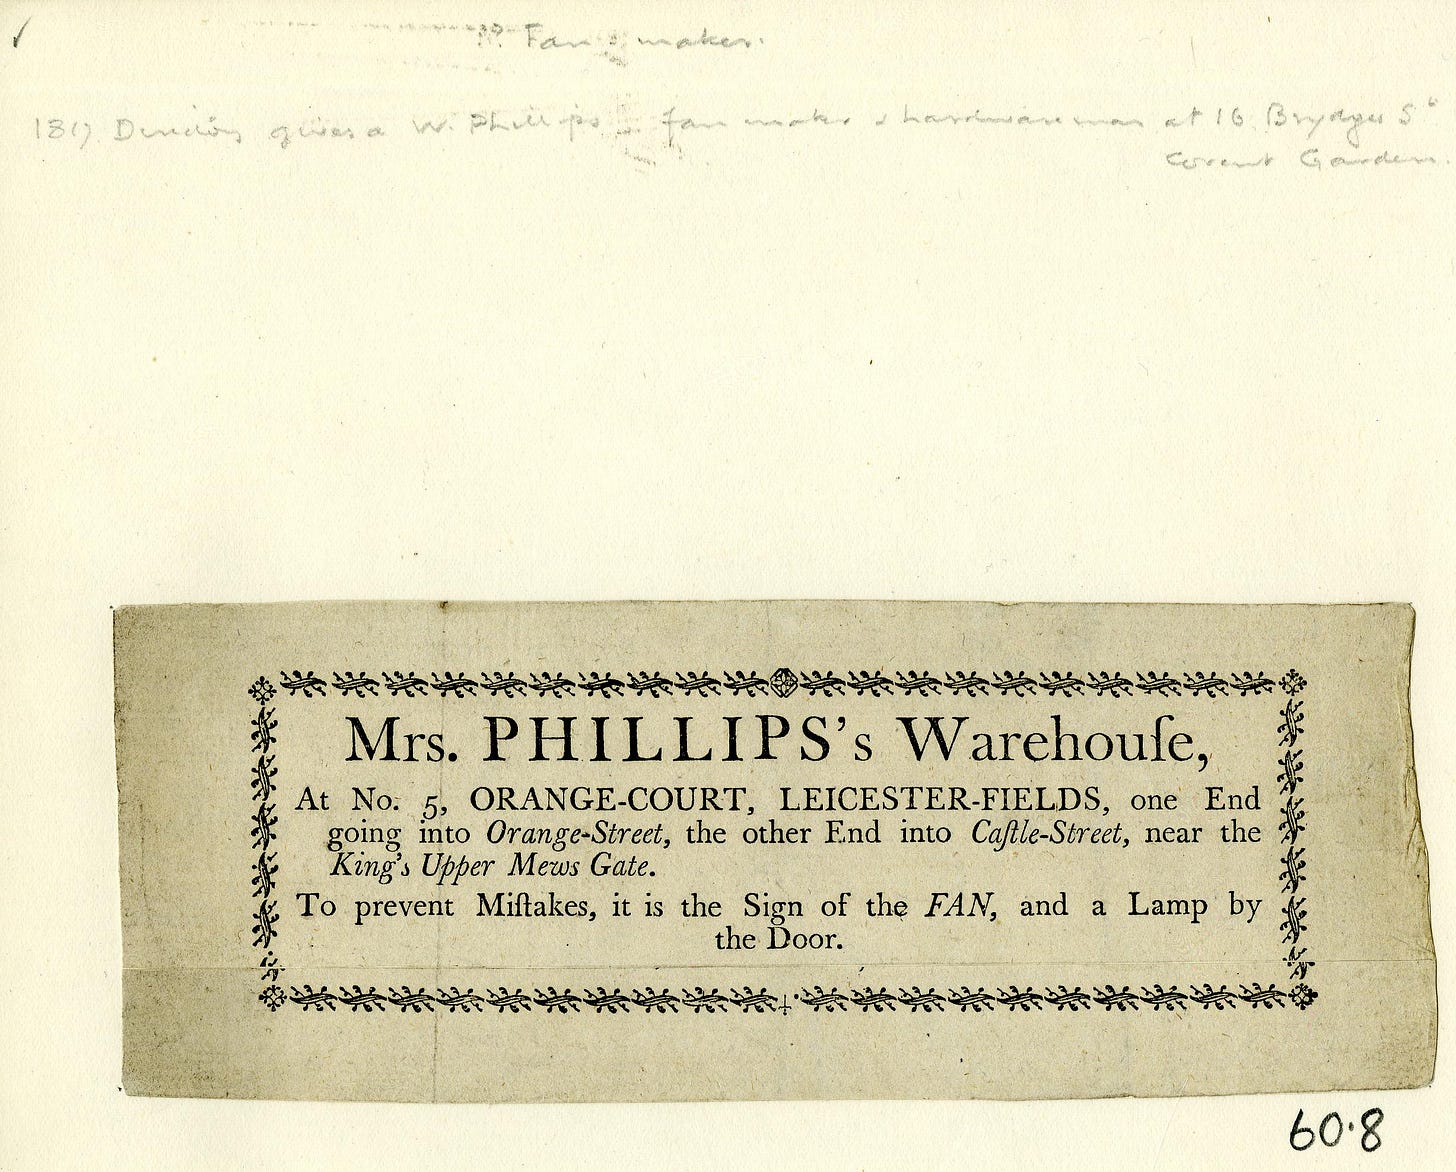 ✓
? Fan maker.
1817 Directory gives a W. Phillips fan maker & hardwareman at 16 Brydges St
Covent Garden.
Mrs. PHILLIPS's Warehouſe,
At No. 5, ORANGE-COURT, LEICESTER-FIELDS, one End
going into Orange-Street, the other End into Caſtle-Street, near the
King's Upper Mews Gate.
To prevent Miſtakes, it is the Sign of the FAN, and a Lamp by
the Door.
60.8